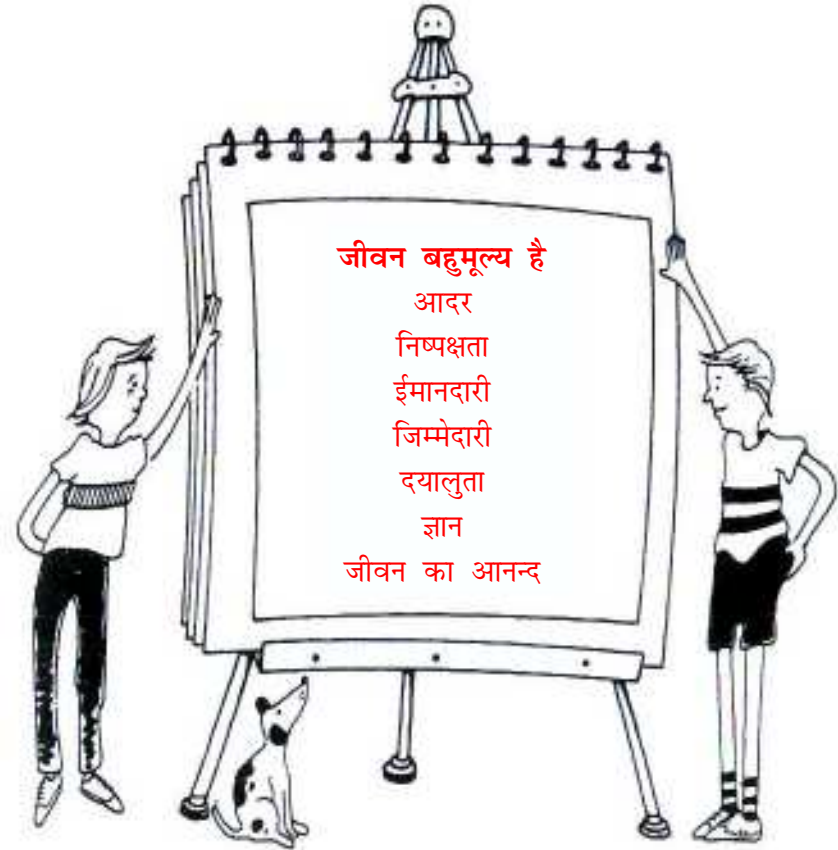 जीवन बहुमूल्य है
आदर
निष्पक्षता
ईमानदारी
जिम्मेदारी
दयालुता
ज्ञान
जीवन का आनन्द